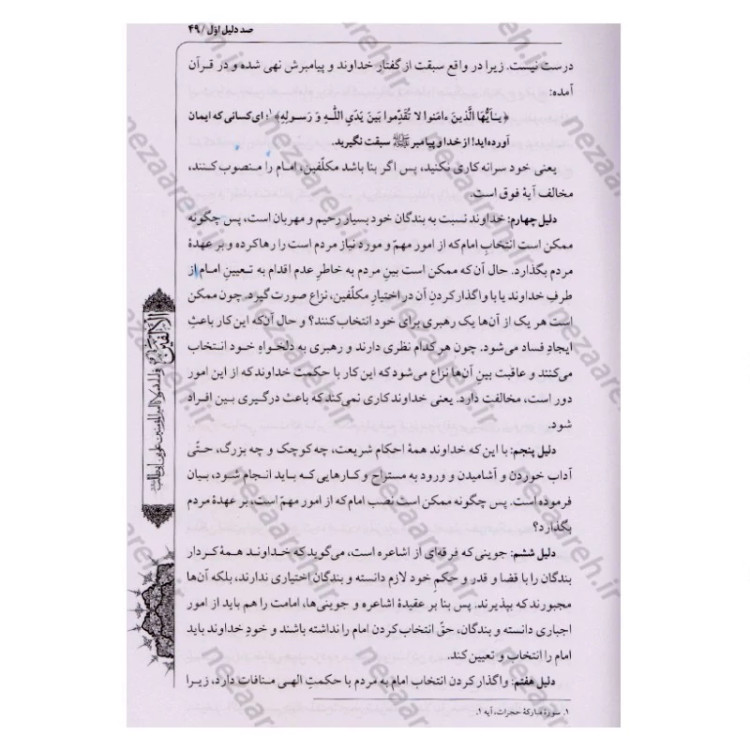 صد دلیل اوّل / ۴۹
درست نیست. زیرا در واقع سبقت از گفتار خداوند و پیامبرش نهی شده و در قرآن
آمده:
﴿یـٰأیُّهَا الَّذینَ ءامَنوا لا تُقَدِّموا بَینَ یَدَیِ اللّـهِ وَ رَسولِهِ﴾۱؛ ای کسانی که ایمان
آورده‌اید! از خدا و پیامبر ﷺ سبقت نگیرید.
یعنی خود سرانه کاری نکنید، پس اگر بنا باشد مکلّفین، امام را منصوب کنند،
مخالف آیهٔ فوق است.
دلیل چهارم: خداوند نسبت به بندگان خود بسیار رحیم و مهربان است، پس چگونه
ممکن است انتخاب امام که از امور مهمّ و مورد نیاز مردم است را رها کرده و بر عهدهٔ
مردم بگذارد. حال آن‌که ممکن است بینِ مردم به خاطرِ عدم اقدام به تعیینِ امام از
طرفِ خداوند یا با واگذار کردنِ آن در اختیارِ مکلّفین، نزاع صورت گیرد. چون ممکن
است هر یک از آن‌ها یک رهبری برای خود انتخاب کنند؟ و حال آن‌که این کار باعثِ
ایجادِ فساد می‌شود. چون هر کدام نظری دارند و رهبری به دلخواهِ خود انتخاب
می‌کنند و عاقبت بینِ آن‌ها نزاع می‌شود که این کار با حکمت خداوند که از این امور
دور است، مخالفت دارد. یعنی خداوند کاری نمی‌کند که باعث درگیری بین افراد
شود.
دلیل پنجم: با این که خداوند همهٔ احکام شریعت، چه کوچک و چه بزرگ، حتّی
آداب خوردن و آشامیدن و ورود به مستراح و کارهایی که باید انجام شود، بیان
فرموده است. پس چگونه ممکن است نصب امام که از امور مهمّ است، بر عهدهٔ مردم
بگذارد؟
دلیل ششم: جوینی که فرقه‌ای از اشاعره است، می‌گوید که خداوند همهٔ کردار
بندگان را با قضا و قدر و حکمِ خود لازم دانسته و بندگان اختیاری ندارند، بلکه آن‌ها
مجبورند که بپذیرند. پس بنا بر عقیدهٔ اشاعره و جوینی‌ها، امامت را هم باید از امور
اجباری دانسته و بندگان، حقّ انتخاب کردن امام را نداشته باشند و خودِ خداوند باید
امام را انتخاب و تعیین کند.
دلیل هفتم: واگذار کردن انتخاب امام به مردم با حکمتِ الهی منافات دارد، زیرا
۱. سورهٔ مبارکهٔ حجرات، آیه ۱.
الألفین
nezaareh.ir